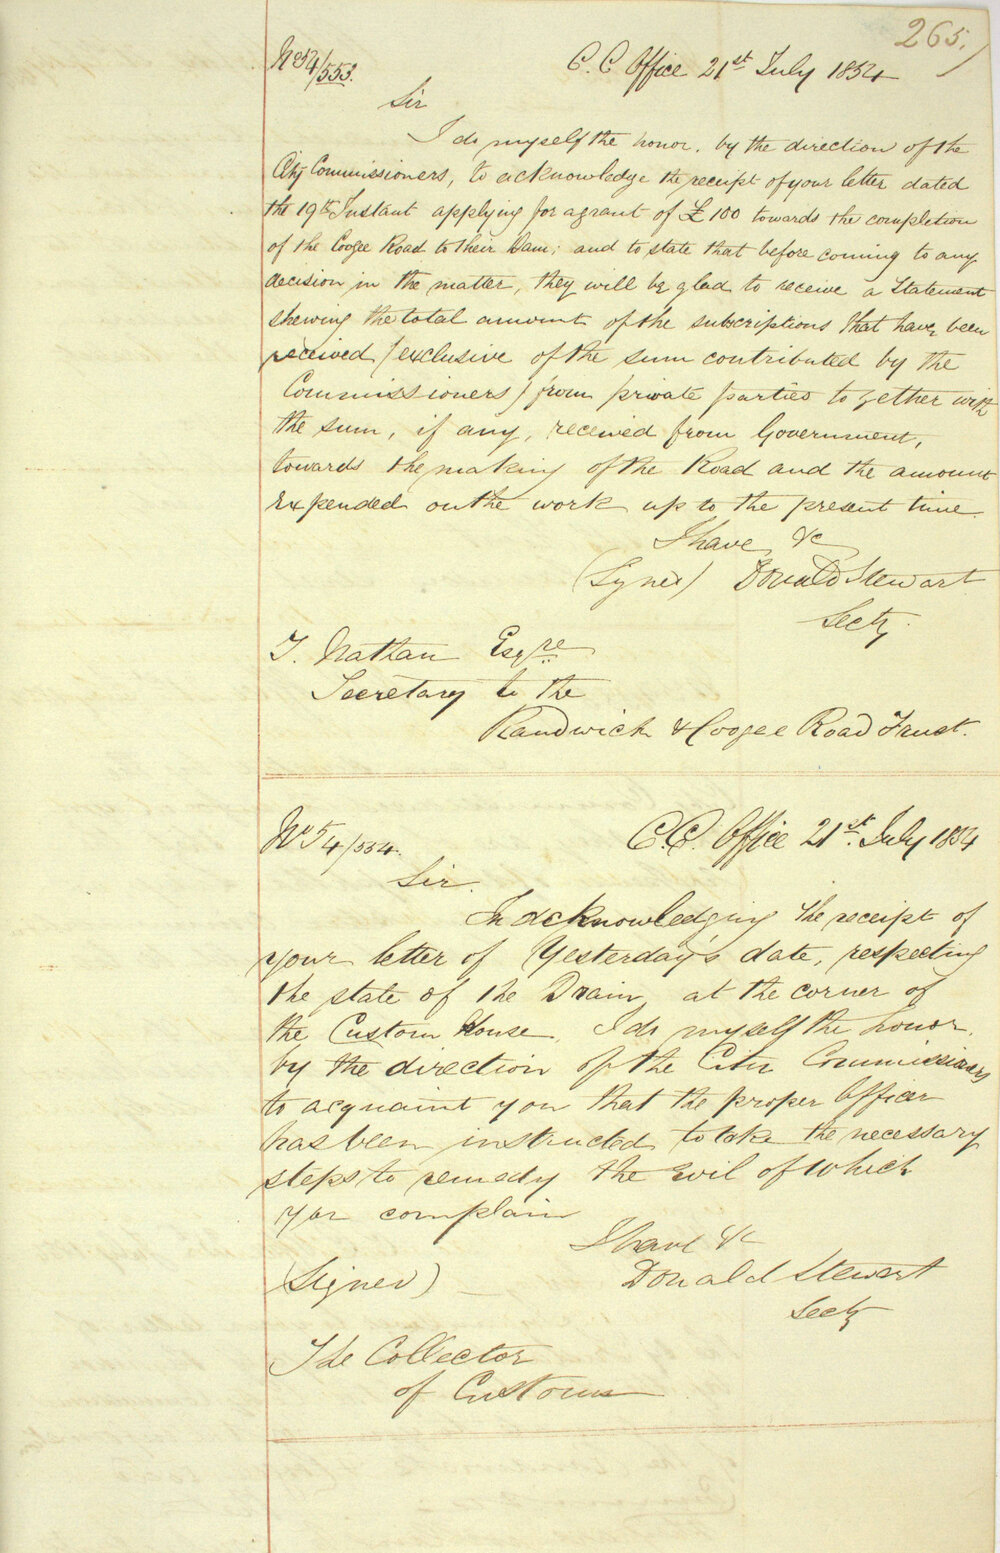 265.
No 54/553. C. C. Office 21st July 1854
Sir
I do myself the honor, by the direction of the
City Commissioners, to acknowledge the receipt of your letter dated
the 19th Instant applying for a grant of £100 towards the completion
of the Coogee Road to their Dam; and to state that before coming to any
decision in the matter, they will be glad to receive a Statement
shewing the total amount of the subscriptions that have been
received (exclusive of the sum contributed by the
Commissioners) from private parties to gether with
the sum, if any, received from Government,
towards the making of the Road and the amount
expended on the work up to the present time.
I have &c
(Signed) Donald Stewart
Secty.
T. Nathan Esqre
Secretary to the
Randwick & Coogee Road Trust.
No 54/554. C.C. Office 21st July 1854
Sir.
In acknowledging the receipt of
your letter of Yesterday's date, respecting
the state of the Drain, at the corner of
the Custom House. I do myself the honor,
by the direction of the City Commissioners
to acquaint you that the proper Officer
has been instructed to take the necessary
steps to remedy the evil of which
you complain
I have &c
(Signed) Donald Stewart
Secty
The Collector
of Customs